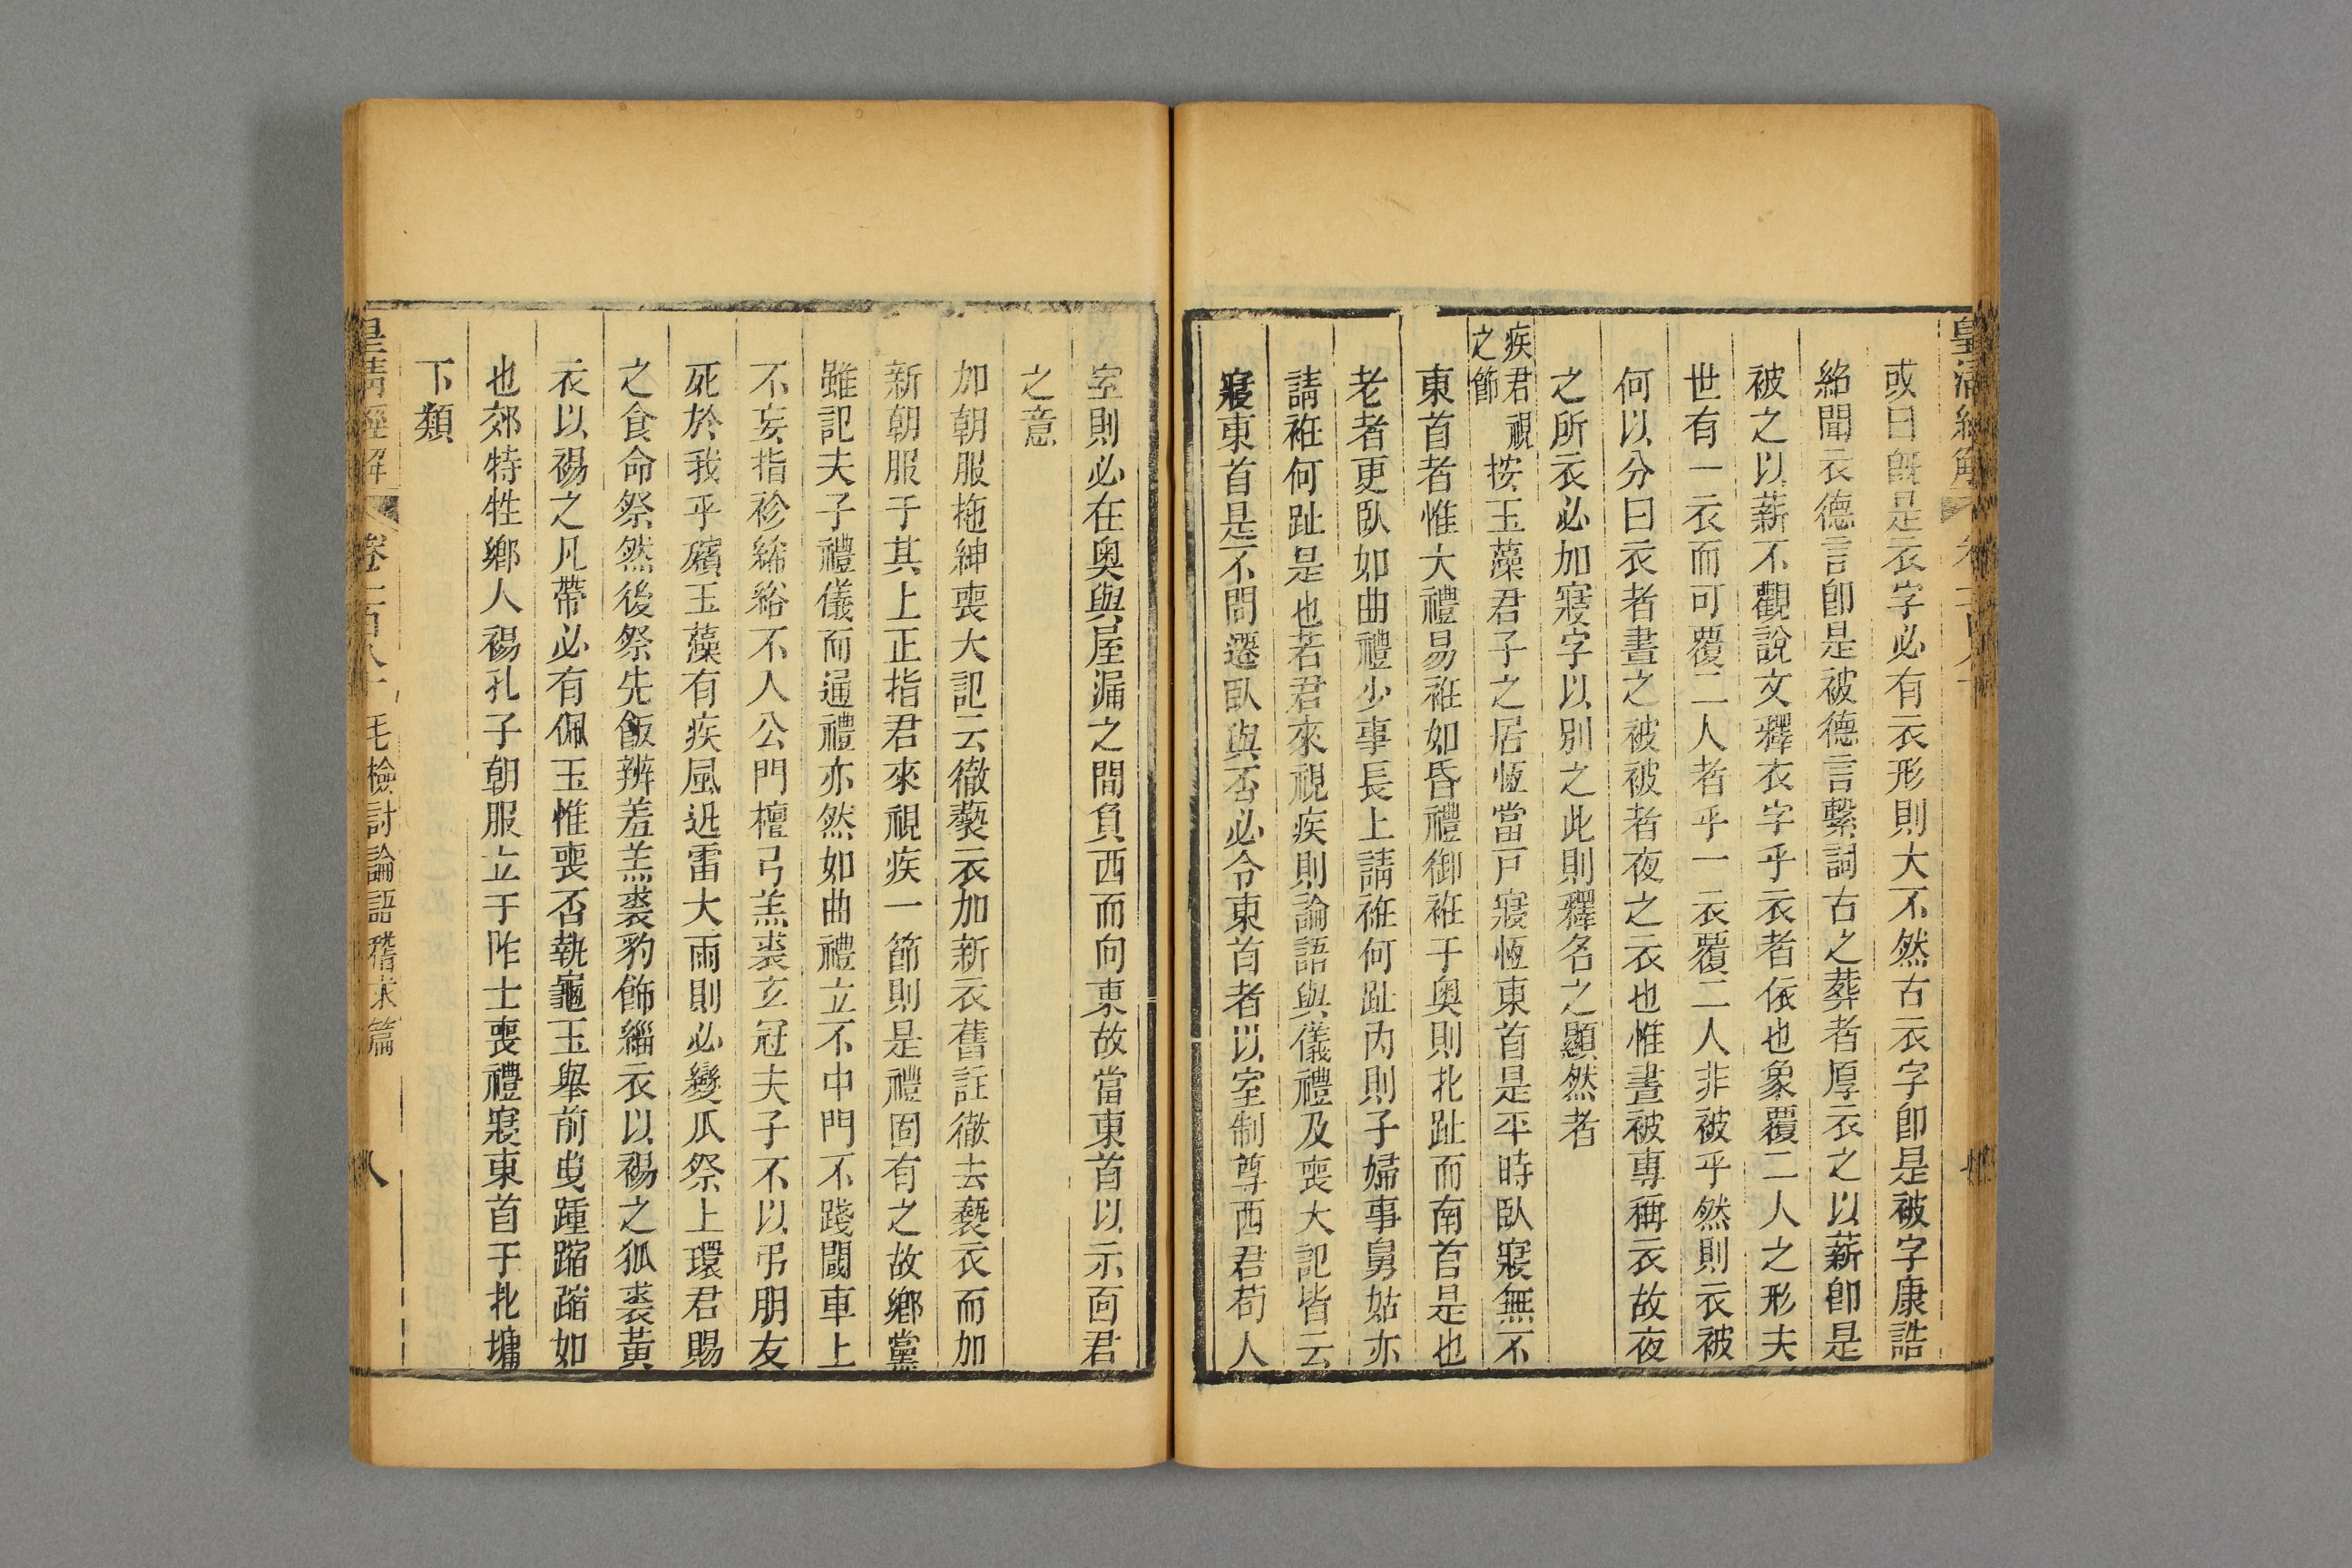 皇清經解
或曰旣是衣字必有衣形則大不然古衣字卽是被字康誥
紹聞衣德言卽是被德言繫詞古之葬者厚衣之以薪卽是
被之以薪不觀說文釋衣字乎衣者依也象覆二人之形夫
世有一衣而可覆二人者乎一衣覆二人非被乎然則衣被
何以分曰衣者晝之被被者夜之衣也惟晝被專稱衣故夜
之所衣必加寢字以別之此則釋名之顯然者
疾君視
之節
按玉藻君子之居恆當戸寢恆東首是平時臥寢無不
東首者惟大禮易袵如昏禮御袵于奥則北趾而南首是也
老者更臥如曲禮少事長上請袵何趾內則子婦事舅姑亦
請袵何趾是也若君來視疾則論語與儀禮及喪大記皆云
寢東首是不問遷臥與否必令東首者以室制尊西君苟人
室則必在奥與屋漏之間負西而向東故當東首以示面君
之意
加朝服拖紳喪大記云徹褻衣加新衣舊註徹去褻衣而加
新朝服于其上正指君來視疾一節則是禮固有之故鄉黨
雖記夫子禮儀而通禮亦然如曲禮立不中門不踐閾車上
不妄指袗絺綌不人公門檀弓羔裘玄冠夫子不以弔朋友
死於我乎殯玉藻有疾風迅雷大雨則必變瓜祭上環君賜
之食命祭然後祭先飯辨羞羔裘豹飾緇衣以裼之狐裘黃
衣以裼之凡帶必有佩玉惟喪否執龜玉舉前曳踵蹜蹜如
也郊特牲鄉人裼孔子朝服立于阼士喪禮寢東首于北墉
下類
皇清經解
卷一百八十
毛檢討論語稽求篇
八